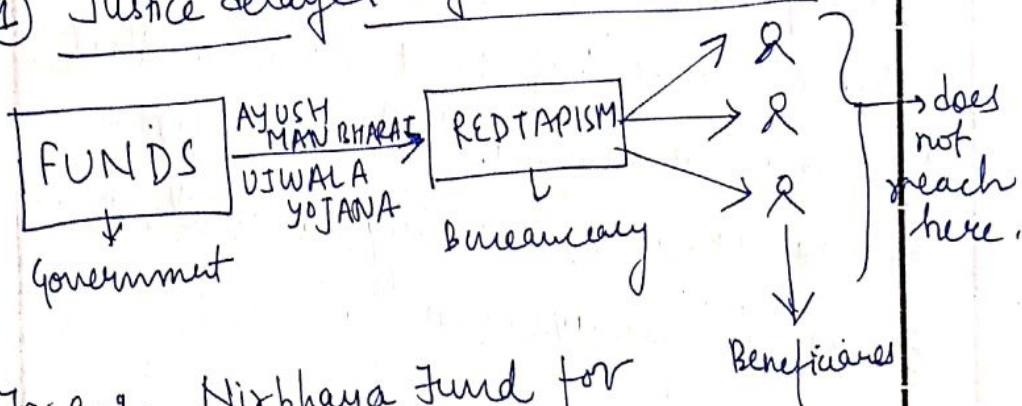 1) Justice delayed
FUNDS
Government
AYUSH
MAN BHARAT
UJWALA
YOJANA
REDTAPISM
Bureaucracy
does
not
reach
here.
Beneficiares
Nirbhaya Fund for